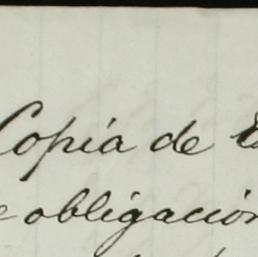 Copia de
obligación